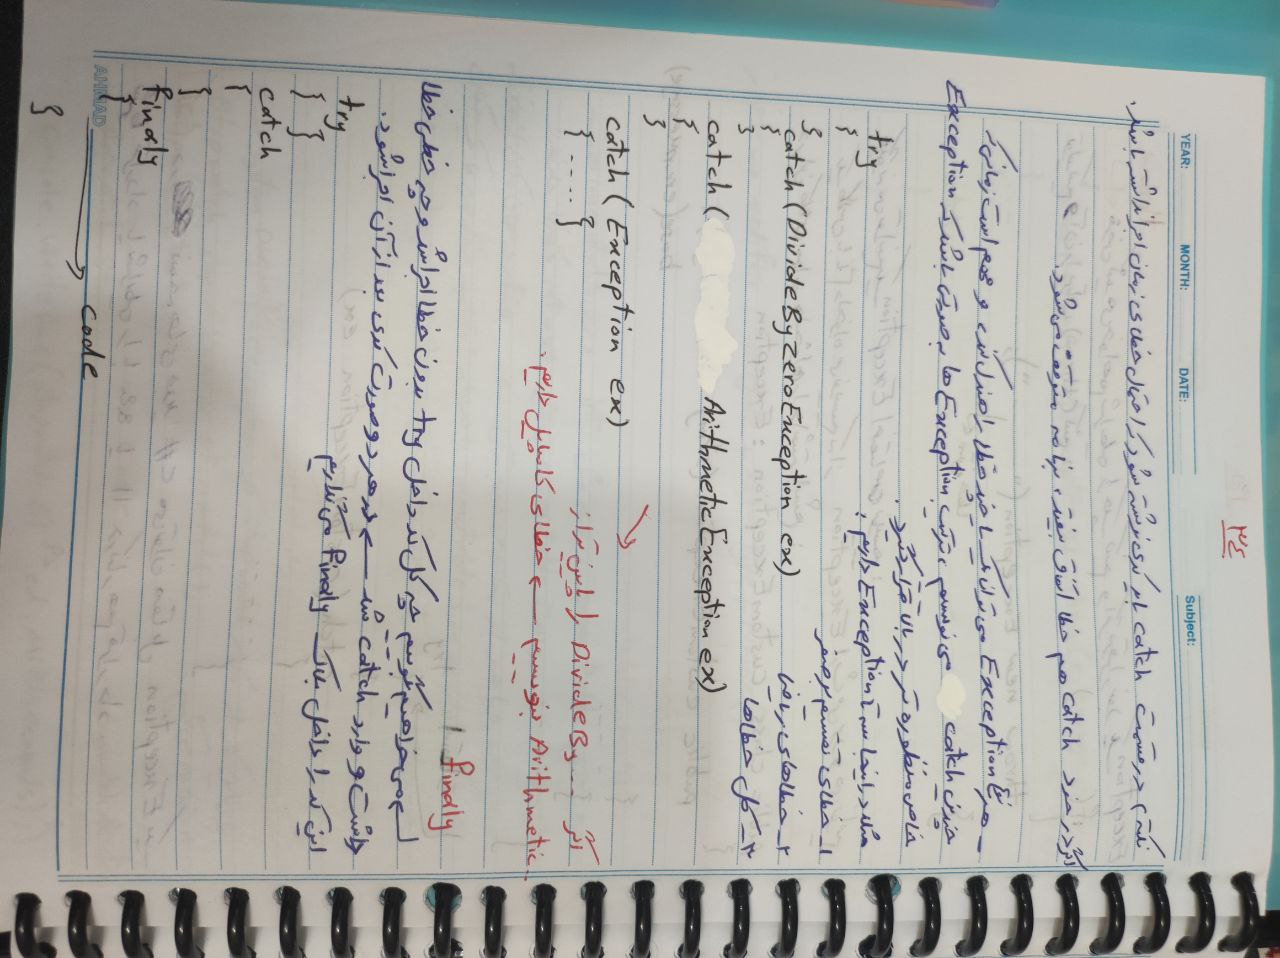 ۳۴
YEAR: MONTH: DATE: Subject:
نکته: در قسمت catch باید کدی نوشته شود که احتمال خطای زمان اجرا نداشته باشد.
اگر در خود catch هم خطا اتفاق بیفتد، برنامه متوقف می‌شود.
- هر نوع Exception می‌تواند یک یا چند خطا را هندل کند، و مهم است زمانی که
چندین catch می‌نویسیم، ترتیب Exception ها به صورتی باشد که Exception
خاص منظوره تر در بالا قرار گیرد.
مثلا در اینجا سه تا Exception داریم:
۱- خطای تقسیم بر صفر
۲- خطاهای ریاضی
۳- کل خطاها
try
{
}
catch (DivideByZeroException ex)
{
}
catch ( ArithmeticException ex)
{
}
catch ( Exception ex)
{ .... }
اگر ... DivideBy را پایین تر از
Arithmetic بنویسیم ← خطای کامپایل داریم.
Finaly
می‌خواهیم بگوییم چه کل کد داخل try بدون خطا اجرا شد و چه خطی خطا
داشت و وارد catch شد ← در هر دو صورت کدی بعد از آن اجرا شود.
این کد را داخل بلاک Finaly می‌گذاریم
try
{ }
catch
{
}
Finaly
{
AHMAD
→ code
}